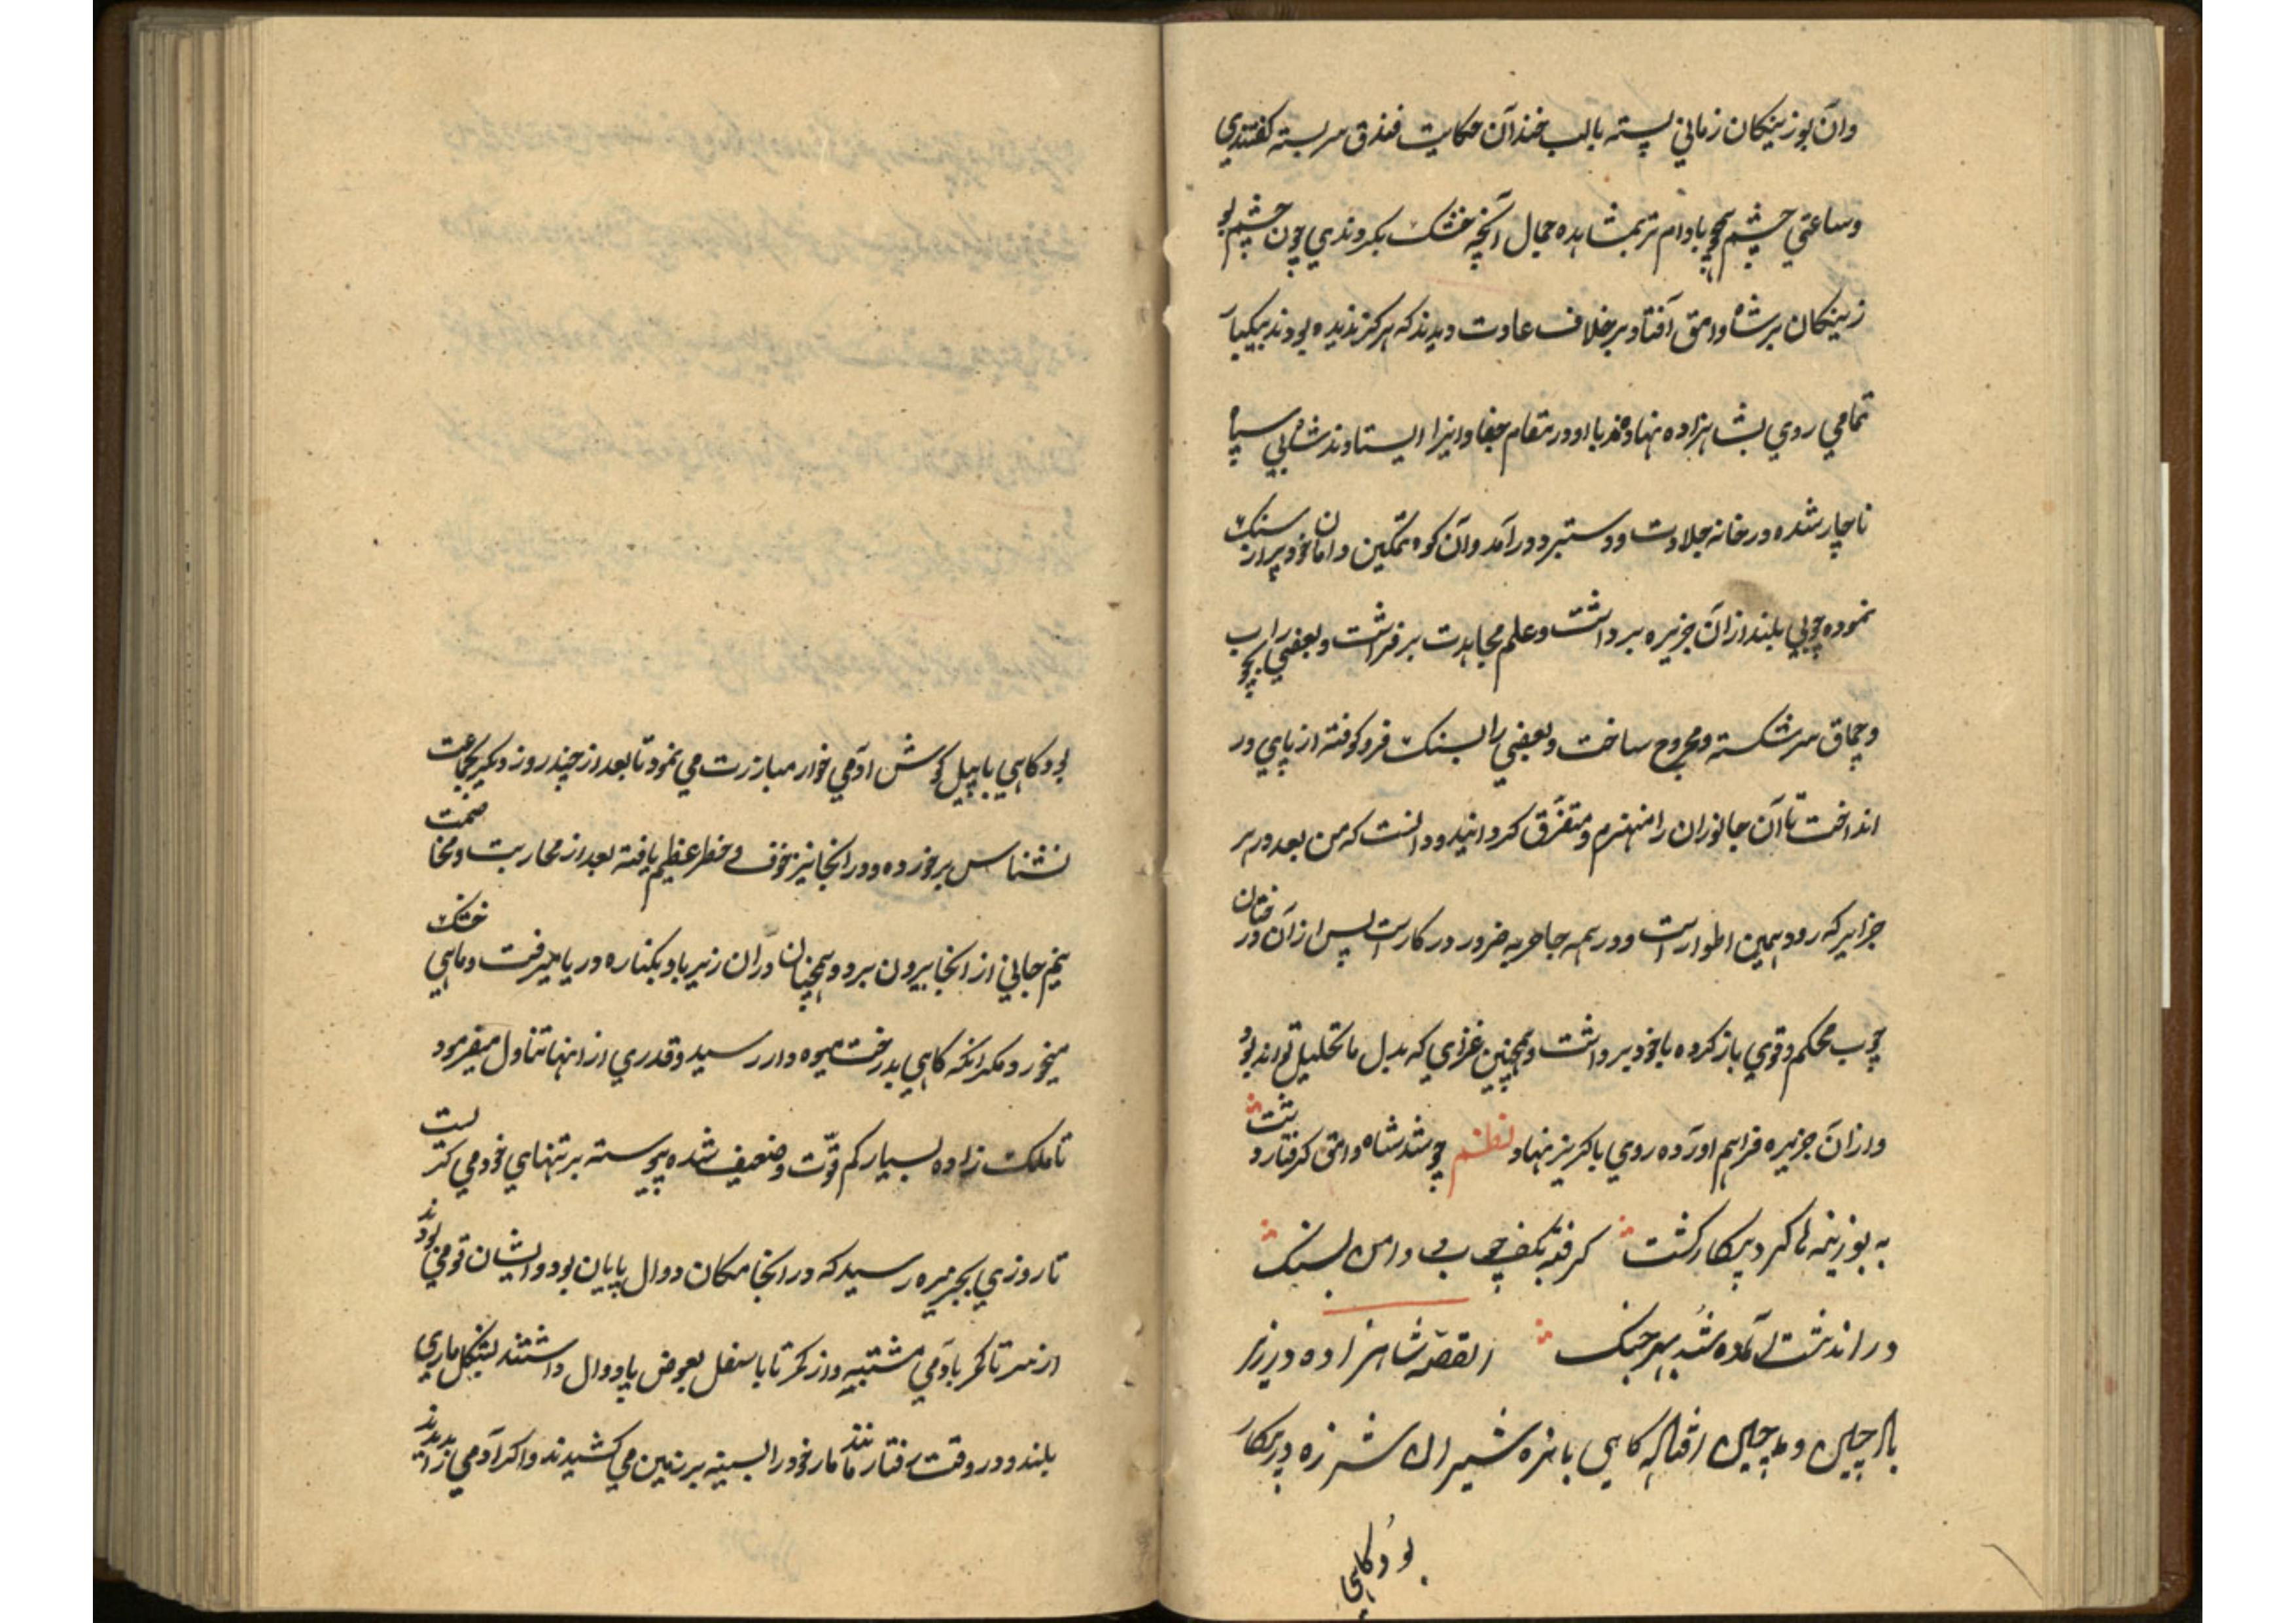 وآن بوزینکان زمانی پسته بالب خندان حکایت فندق سربسته کفتندی
وساعتی چشم همچو بادام تر بمشاهده جمال آنچه خشک بکردندی چون چشم بو
زینکان بر شاه وامق افتاد بر خلاف عادت دیدند که هرکز ندیده بودند بیکبار
تمامی روی بشاهزاده نهادند با او در مقام جفا وایذا ایستادند شاه بی سپاه
ناچار شده در خانه جلادت ودستبرد درآمد وآن کوه تمکین دامان خود پر از سنک
نموده چوبی بلند از آن جزیره برداشت وعلم مجاهدت برفراشت وبعضی را بچوب
وچماق سر شکسته ومجروح ساخت وبعضی را بسنک فرو کوفته از پای در
انداخت تا آن جانوران را منهزم ومتفرق کردانید ودانست که من بعد در هر
جزایر که رود همین اطوار است ودر همه جا حربه ضرور در کار است پس از آن درختان
چوب محکم وقوی باز کرده با خود برداشت وهمچنین غذای که بدل ما تحلیل تواند بود
واز آن جزیره فراهم آورده روی با کریز نهاد نظم چو شد شاه وامق کرفتار دشت
به بوزینه ها کرد پیکار کشت کرفته بکف چوب ودامن بسنک
در اندشت آماده شد بهر جنک القصه شاهزاده در زیر
کاهی با نره شیران شرزه در پیکار
بود کاهی
بود کاهی با پیل کوش آدمی خوار مبارزت می نمود تا بعد از چند روز دیکر بجماعت
نسناس برخورده ودر انجا نیز خوف وخطر عظیم یافته بعد از محاربت ومخاصمت
نیم جانی از انجا بیرون برد وهمچنان در آن زیرباد بکناره دریا میرفت وماهی خشک
میخورد مکر انکه کاهی بدرخت میوه دار رسید وقدری از انها تناول میفرمود
تا ملک زاده بسیار کم قوت وضعیف شده پیوسته بر تنهای خود می کریست
تا روزی بجزیره رسید که در انجا مکان دوال پایان بود وایشان قومی بودند
از سر تا کمر بآدمی مشتبه واز کمر تا باسفل بعوض پا دوال داشتند بشکل ماری
بلند ودر وقت رفتار مانند مار خود را بسینه بر زمین می کشیدند واکر آدمی زاد بدیدند